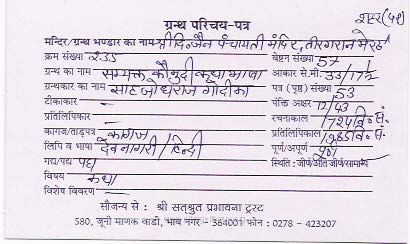 शहर (५९)
ग्रन्थ परिचय-पत्र
मन्दिर/ग्रन्थ भण्डार का नाम- श्री दि० जैन पंचायती मंदिर, तीरगरान मेरठ
क्रम संख्या २३५ वेष्टन संख्या 57
ग्रन्थ का नाम सम्यक्त कौमुदी कथा भाषा आकार से.मी 33/17½
ग्रन्थकार का नाम साह जोधराज गोदीका पत्र (पृष्ठ) संख्या 53
टीकाकार पंक्ति अक्षर 12/43
प्रतिलिपिकार रचनाकाल 1724 वि. सं.
कागज/ताड़पत्र कागज प्रतिलिपिकाल 1985 वि. सं.
लिपि व भाषा देवनागरी / हिन्दी पूर्ण/अपूर्ण पूर्ण
गद्य/पद्य पद्य स्थिति : जीर्ण/अति जीर्ण/सामान्य
विषय कथा
विशेष विवरण -
सौजन्य से : श्री सत्श्रुत प्रभावना ट्रस्ट
580, जूनी माणक वाडी, भाव नगर - 364001 फोन : 0278 - 423207